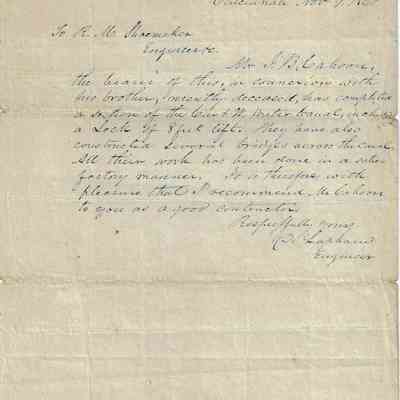 Cincinnati Nov 9,
To R. M. Shoemaker
Engineer &c.
Mr. J. B. Cahoon,
the bearer of this, in connexion with
his brother, recently deceased, has completed
a section of the Cin. & Water Canal, including
a Lock of 8 feet lift. They have also
constructed several bridges across the Canal.
All their work has been done in a satis
factory manner. It is therefore, with
pleasure that I recommend Mr Cahoon
to you as a good contractor.
Respectfully yours
Lapham
Engineer